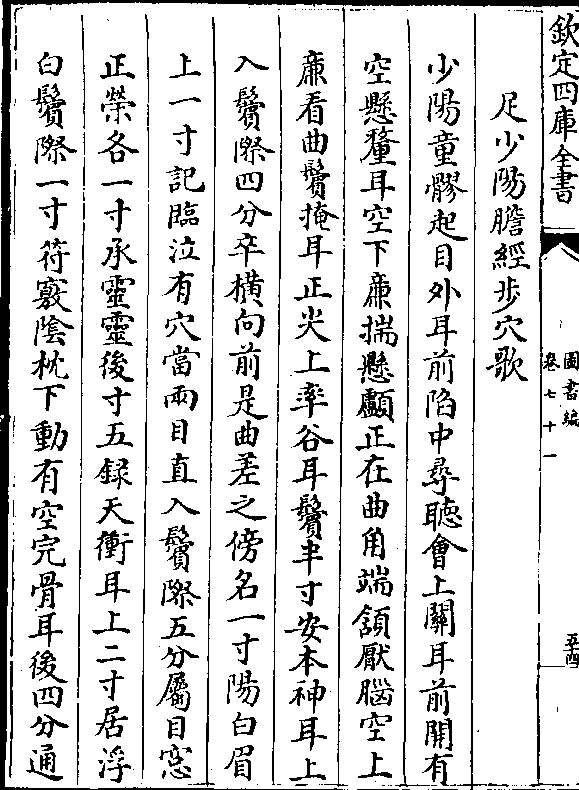 欽定四庫全書
圖書編
卷七十一
五十四
足少陽膽經步穴歌
少陽童髎起目外耳前陷中尋聽會上關耳前開有
空懸釐耳空下亷揣懸顱正在曲角端頷厭腦空上
亷看曲鬢掩耳正尖上率谷耳鬢半寸安本神耳上
入鬢際四分卒橫向前是曲差之傍名一寸陽白眉
上一寸記臨泣有穴當兩目直入鬢際五分屬目窓
正榮各一寸承靈靈後寸五録天衝耳上二寸居浮
白鬢際一寸符竅陰枕下動有空完骨耳後四分通